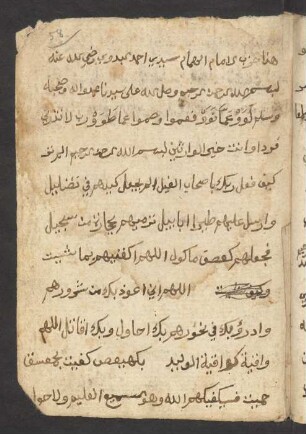 58
هذا حزب الامام الهمام سيدي احمد البدوي رضي الله عنه
بسم الله الرحمن الرحيم وصلى الله على سيدنا محمد واله وصحبه
وسلم وعموا وصموا عما طووا رب لا تذرني
فردا وانت خير الوارثين بسم الله الرحمن الرحيم الم تر
كيف فعل ربك باصحاب الفيل الم يجعل كيدهم في تضليل
وارسل عليهم طيرا ابابيل ترميهم بحجارة من سجيل
فجعلهم كعصف ماكول اللهم اكفنيهم بما شئت
اللهم اني اعوذ بك من شرورهم
وادرؤ بك في نحورهم بك احاول وبك اقاتل اللهم
واقية كواقية الوليد بكهيعص كفيت بحمعسق
حميت فسيكفيكهم الله وهو السميع العليم ولا حول